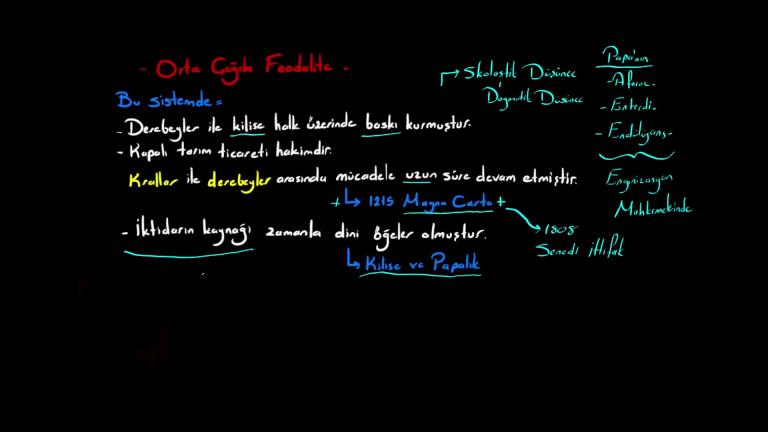 - Orta Çağda Feodalite -
Bu sistemde =
- Derebeyler ile kilise halk üzerinde baskı kurmuştur.
- Kapalı tarım ticareti hakimdir.
Krallar ile derebeyler arasında mücadele uzun süre devam etmiştir.
+ 1215 Magna Carta +
- İktidarın kaynağı zamanla dini öğeler olmuştur.
Kilise ve Papalık
Skolastik Düşünce
Dogmatik Düşünce
1808
Senedi İttifak
Papa'nın
- Aforoz
- Enterdi
- Endüljans
Engizisyon
Mahkemelerinde